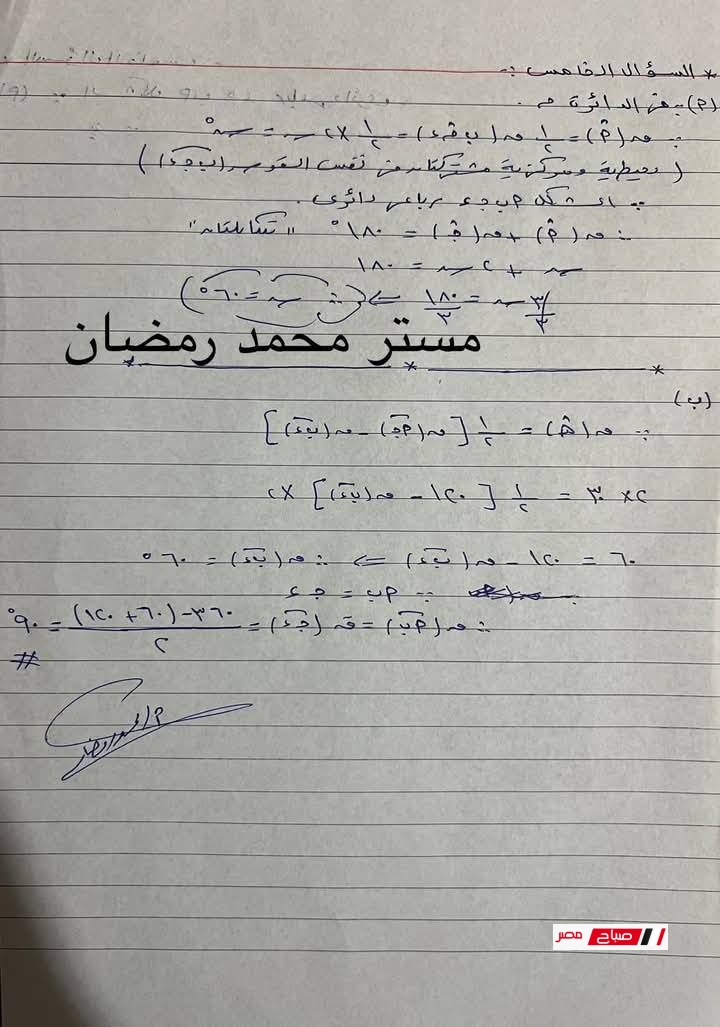 * السؤال الخامس :-
(أ) :- فى الدائرة م .
∵ ق(أ̂) = ١/٢ ق(ب م̂ ء) = ١/٢ × ٢س = س°
( محيطية ومركزية مشتركتان فى نفس القوس (ب ج ء) )
∵ الشكل أ ب ج ء رباعى دائرى .
∴ ق(أ̂) + ق(ج̂) = ١٨٠° "متقابلتان"
س + ٢س = ١٨٠
٣س/٣ = ١٨٠/٣ ⇐ (∴ س = ٦٠°)
مستر محمد رمضان
(ب)
∵ ق(ه̂) = ١/٢ [ق(أ ج) - ق(ب ء)]
٢ × ٣٠ = ١/٢ [١٢٠ - ق(ب ء)] × ٢
٦٠ = ١٢٠ - ق(ب ء) ⇐ ∴ ق(ب ء) = ٦٠°
∵ أ ب = ج ء
∴ ق(أ ب) = ق(ج ء) = (٣٦٠ - (٦٠ + ١٢٠))/٢ = ٩٠°
#
صباح مصر